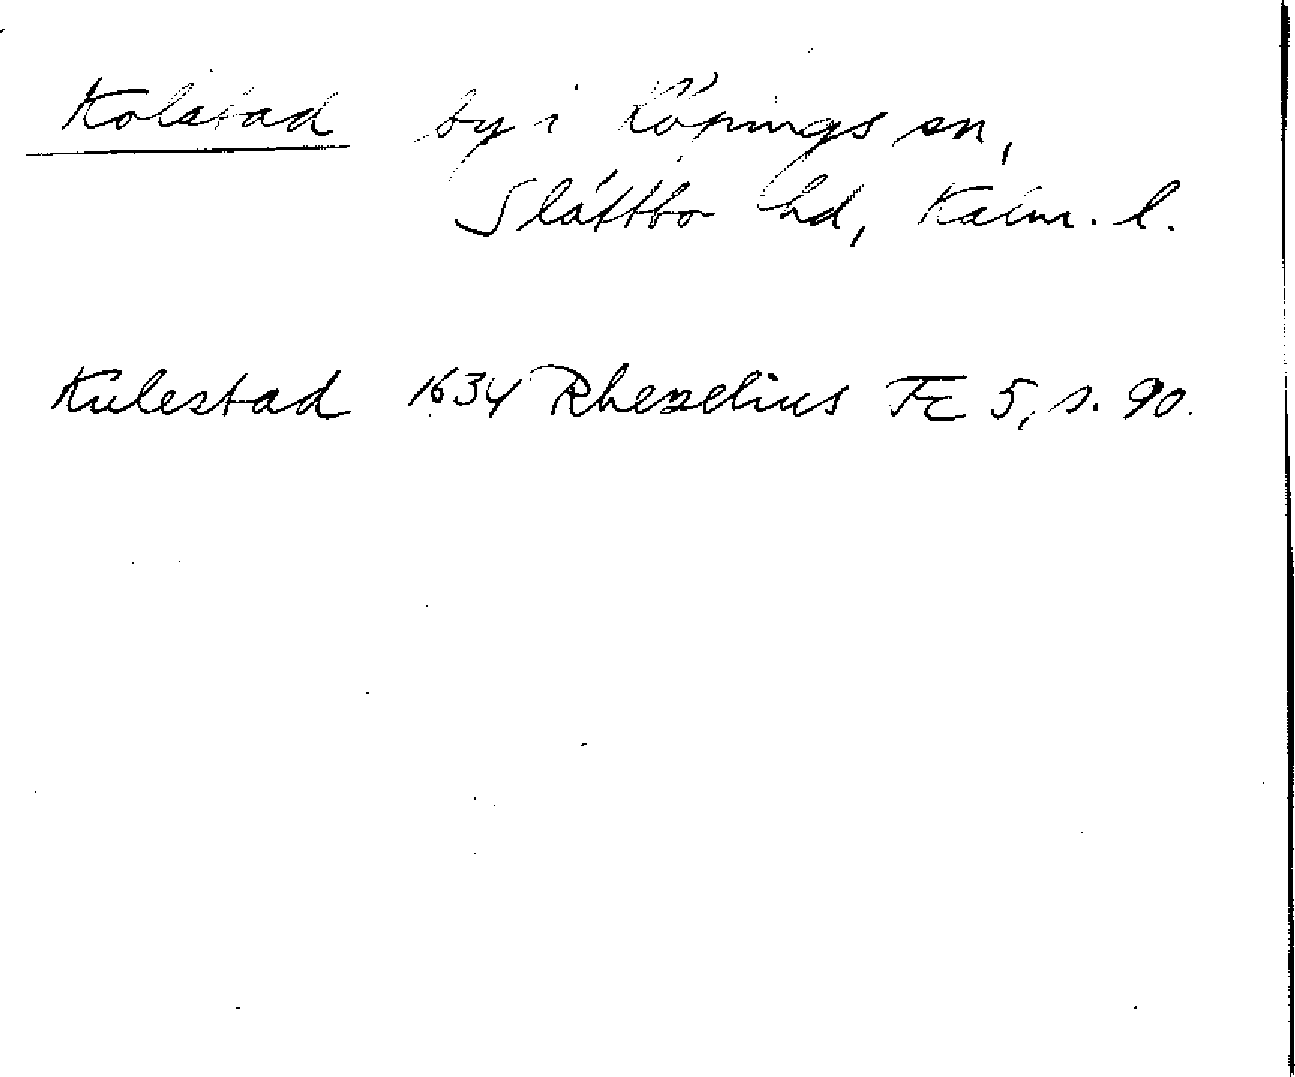 Kolstad by i Köpings sn,
Slättbo hd, Kalm. l.
Kulestad 1634 Rhezelius Fc 5, s. 90.